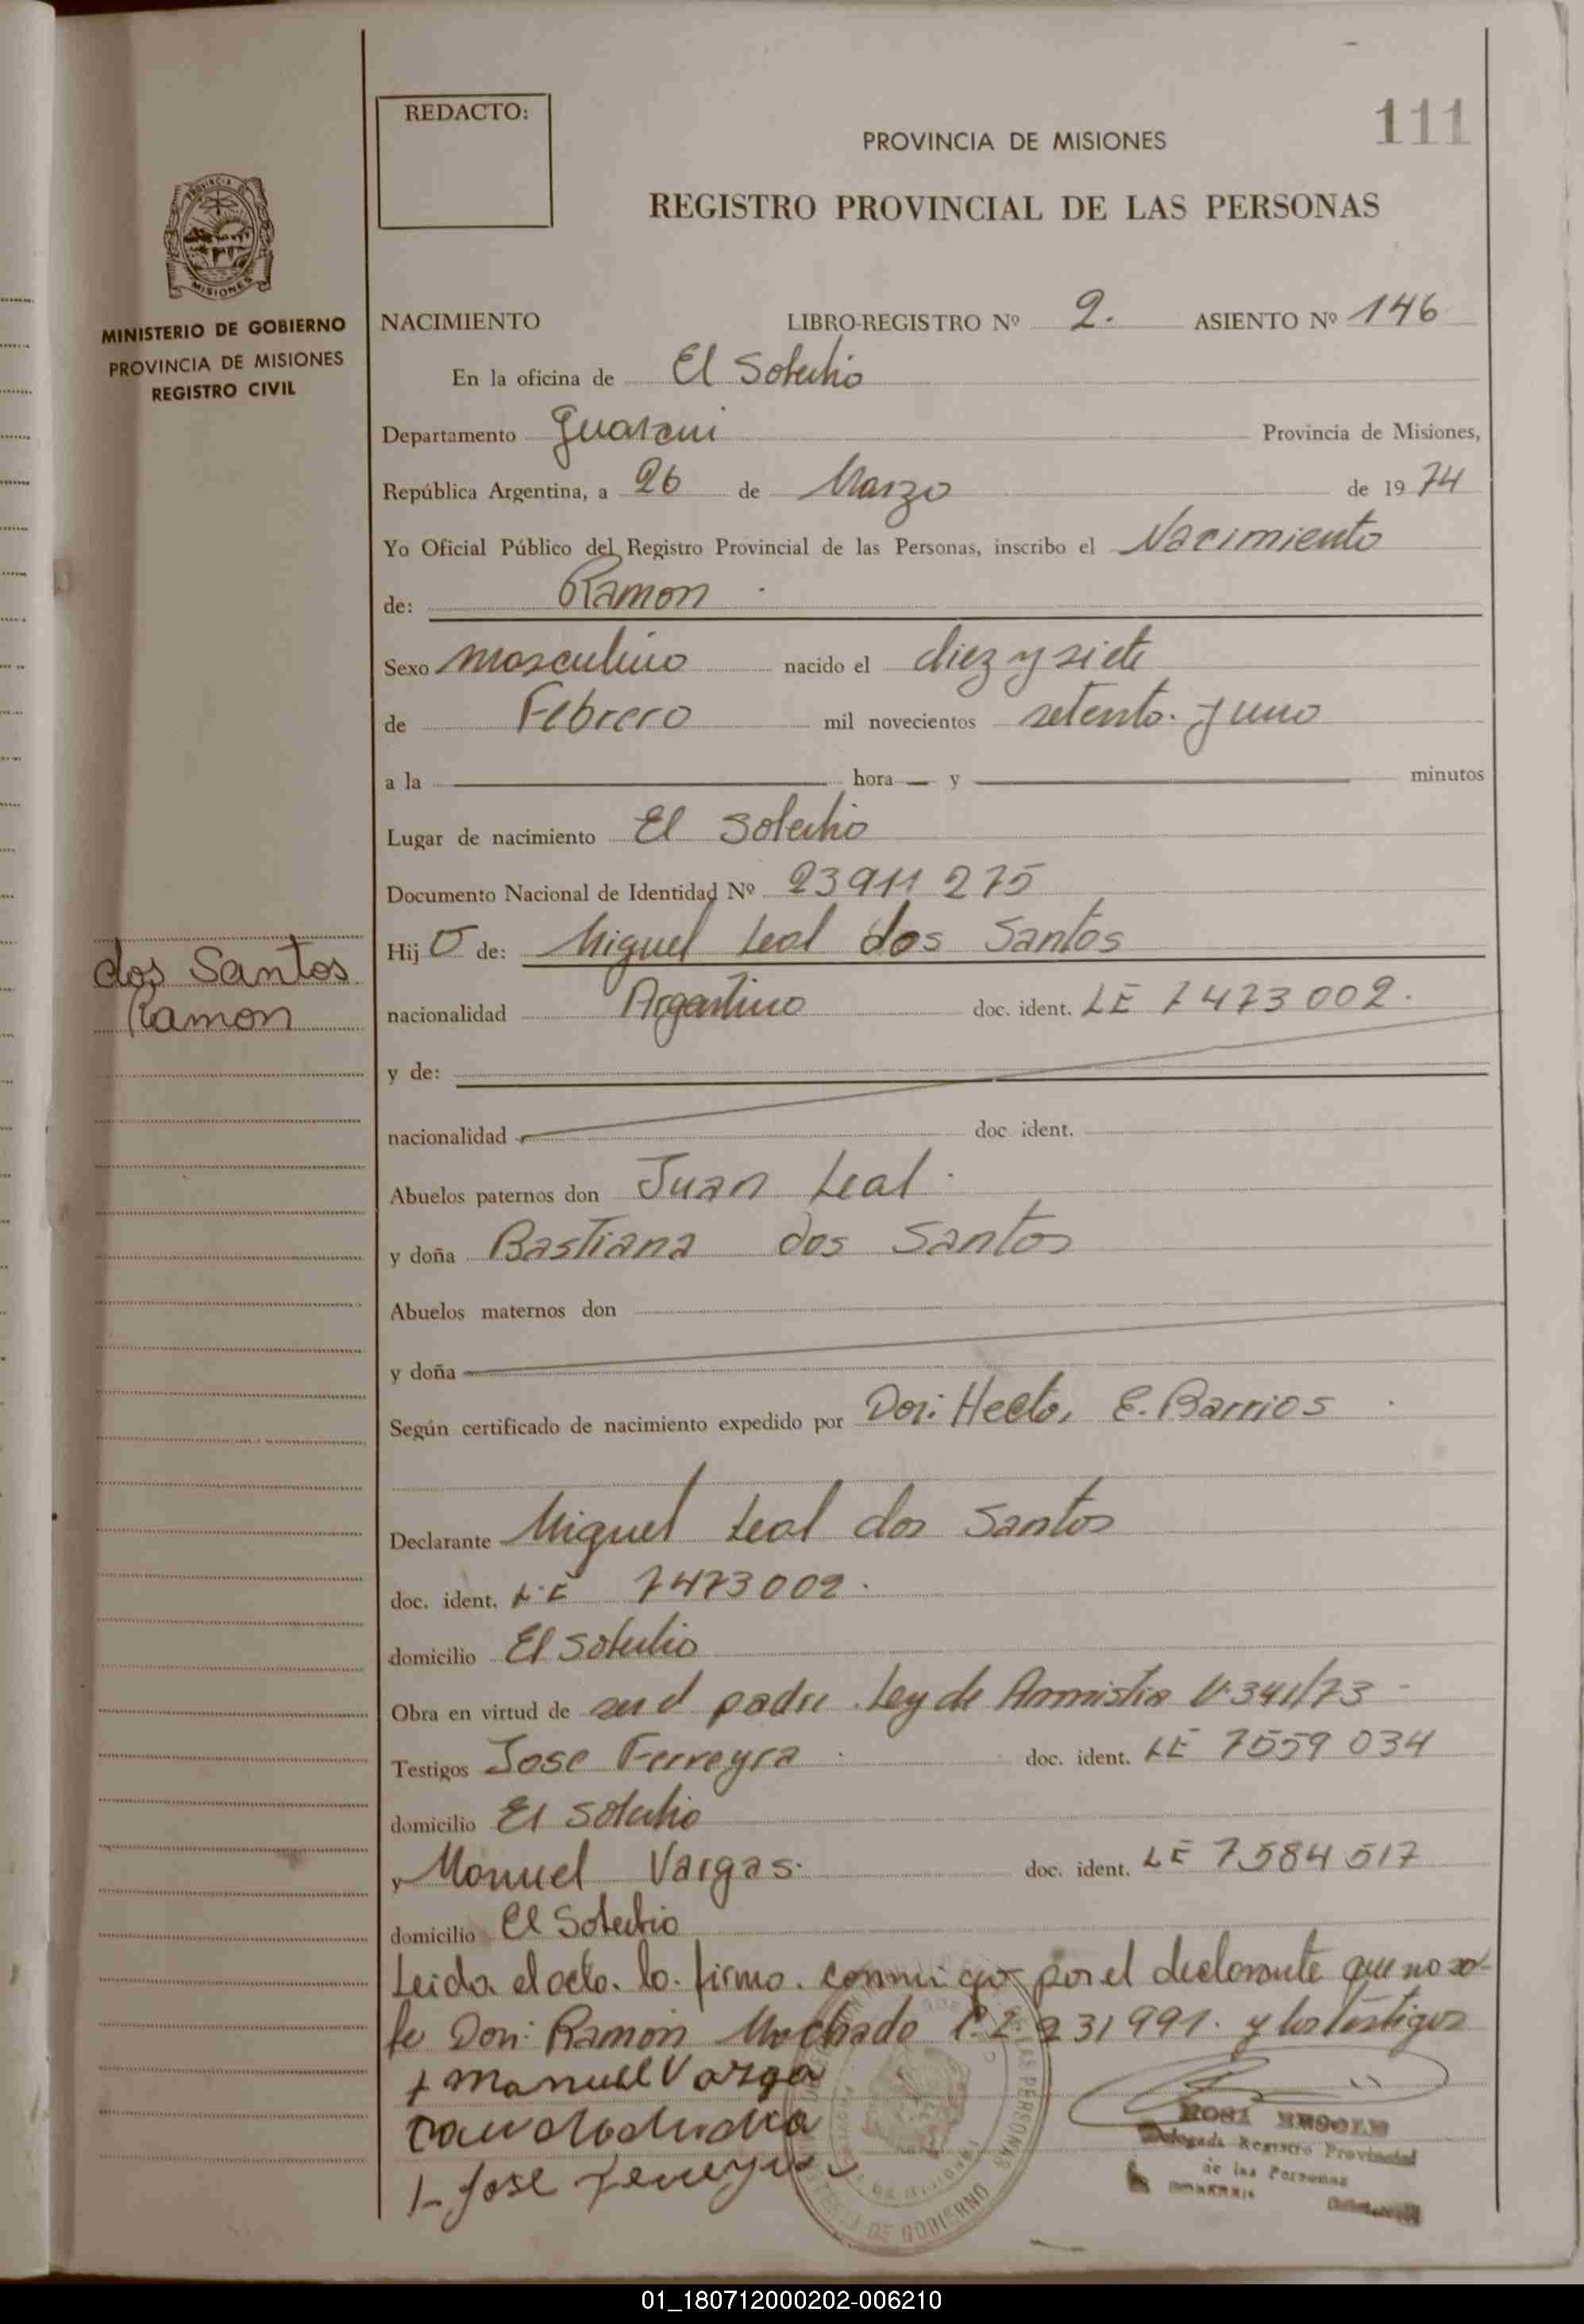 REDACTO:
111
PROVINCIA DE MISIONES
REGISTRO PROVINCIAL DE LAS PERSONAS
PROVINCIA DE
MISIONES
MINISTERIO DE GOBIERNO
PROVINCIA DE MISIONES
REGISTRO CIVIL
NACIMIENTO LIBRO-REGISTRO Nº 2. ASIENTO Nº 146
En la oficina de El Soberbio
Departamento Guarani Provincia de Misiones,
República Argentina, a 26 de Marzo de 1974
Yo Oficial Público del Registro Provincial de las Personas, inscribo el Nacimiento
de: Ramon
Sexo masculino nacido el diez y siete
de Febrero mil novecientos setenta y uno
a la hora y minutos
Lugar de nacimiento El Soberbio
Documento Nacional de Identidad Nº 23911275
Hijo de: Miguel Leal dos Santos
dos Santos
Ramon
nacionalidad Argentino doc. ident. LE 7473002.
y de:
nacionalidad doc ident.
Abuelos paternos don Juan Leal
y doña Bastiana dos Santos
Abuelos maternos don
y doña
Según certificado de nacimiento expedido por Don: Hector E. Barrios
Declarante Miguel Leal dos Santos
doc. ident. L.E 7473002.
domicilio El Soberbio
Obra en virtud de ser el padre. Ley de Amnistia
Testigos Jose Ferreyra doc. ident. LE 7559034
domicilio El Soberbio
y Manuel Vargas. doc. ident. LE 7584517
domicilio El Soberbio
Leida el acta. lo. firma. conmigo por el declarante que no sa-
be Don: Ramon Machado 231991. y los testigos
+ Manuel Varga
Jose Ferreyra
DE GOBIERNO
Delegada Registro Provincial
de las Personas
01_180712000202-006210